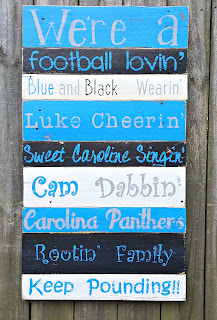 We're a
football lovin'
Blue and Black Wearin'
Luke Cheerin'
Sweet Caroline Singin'
Cam Dabbin'
Carolina Panthers
Rootin' Family
Keep Pounding!!